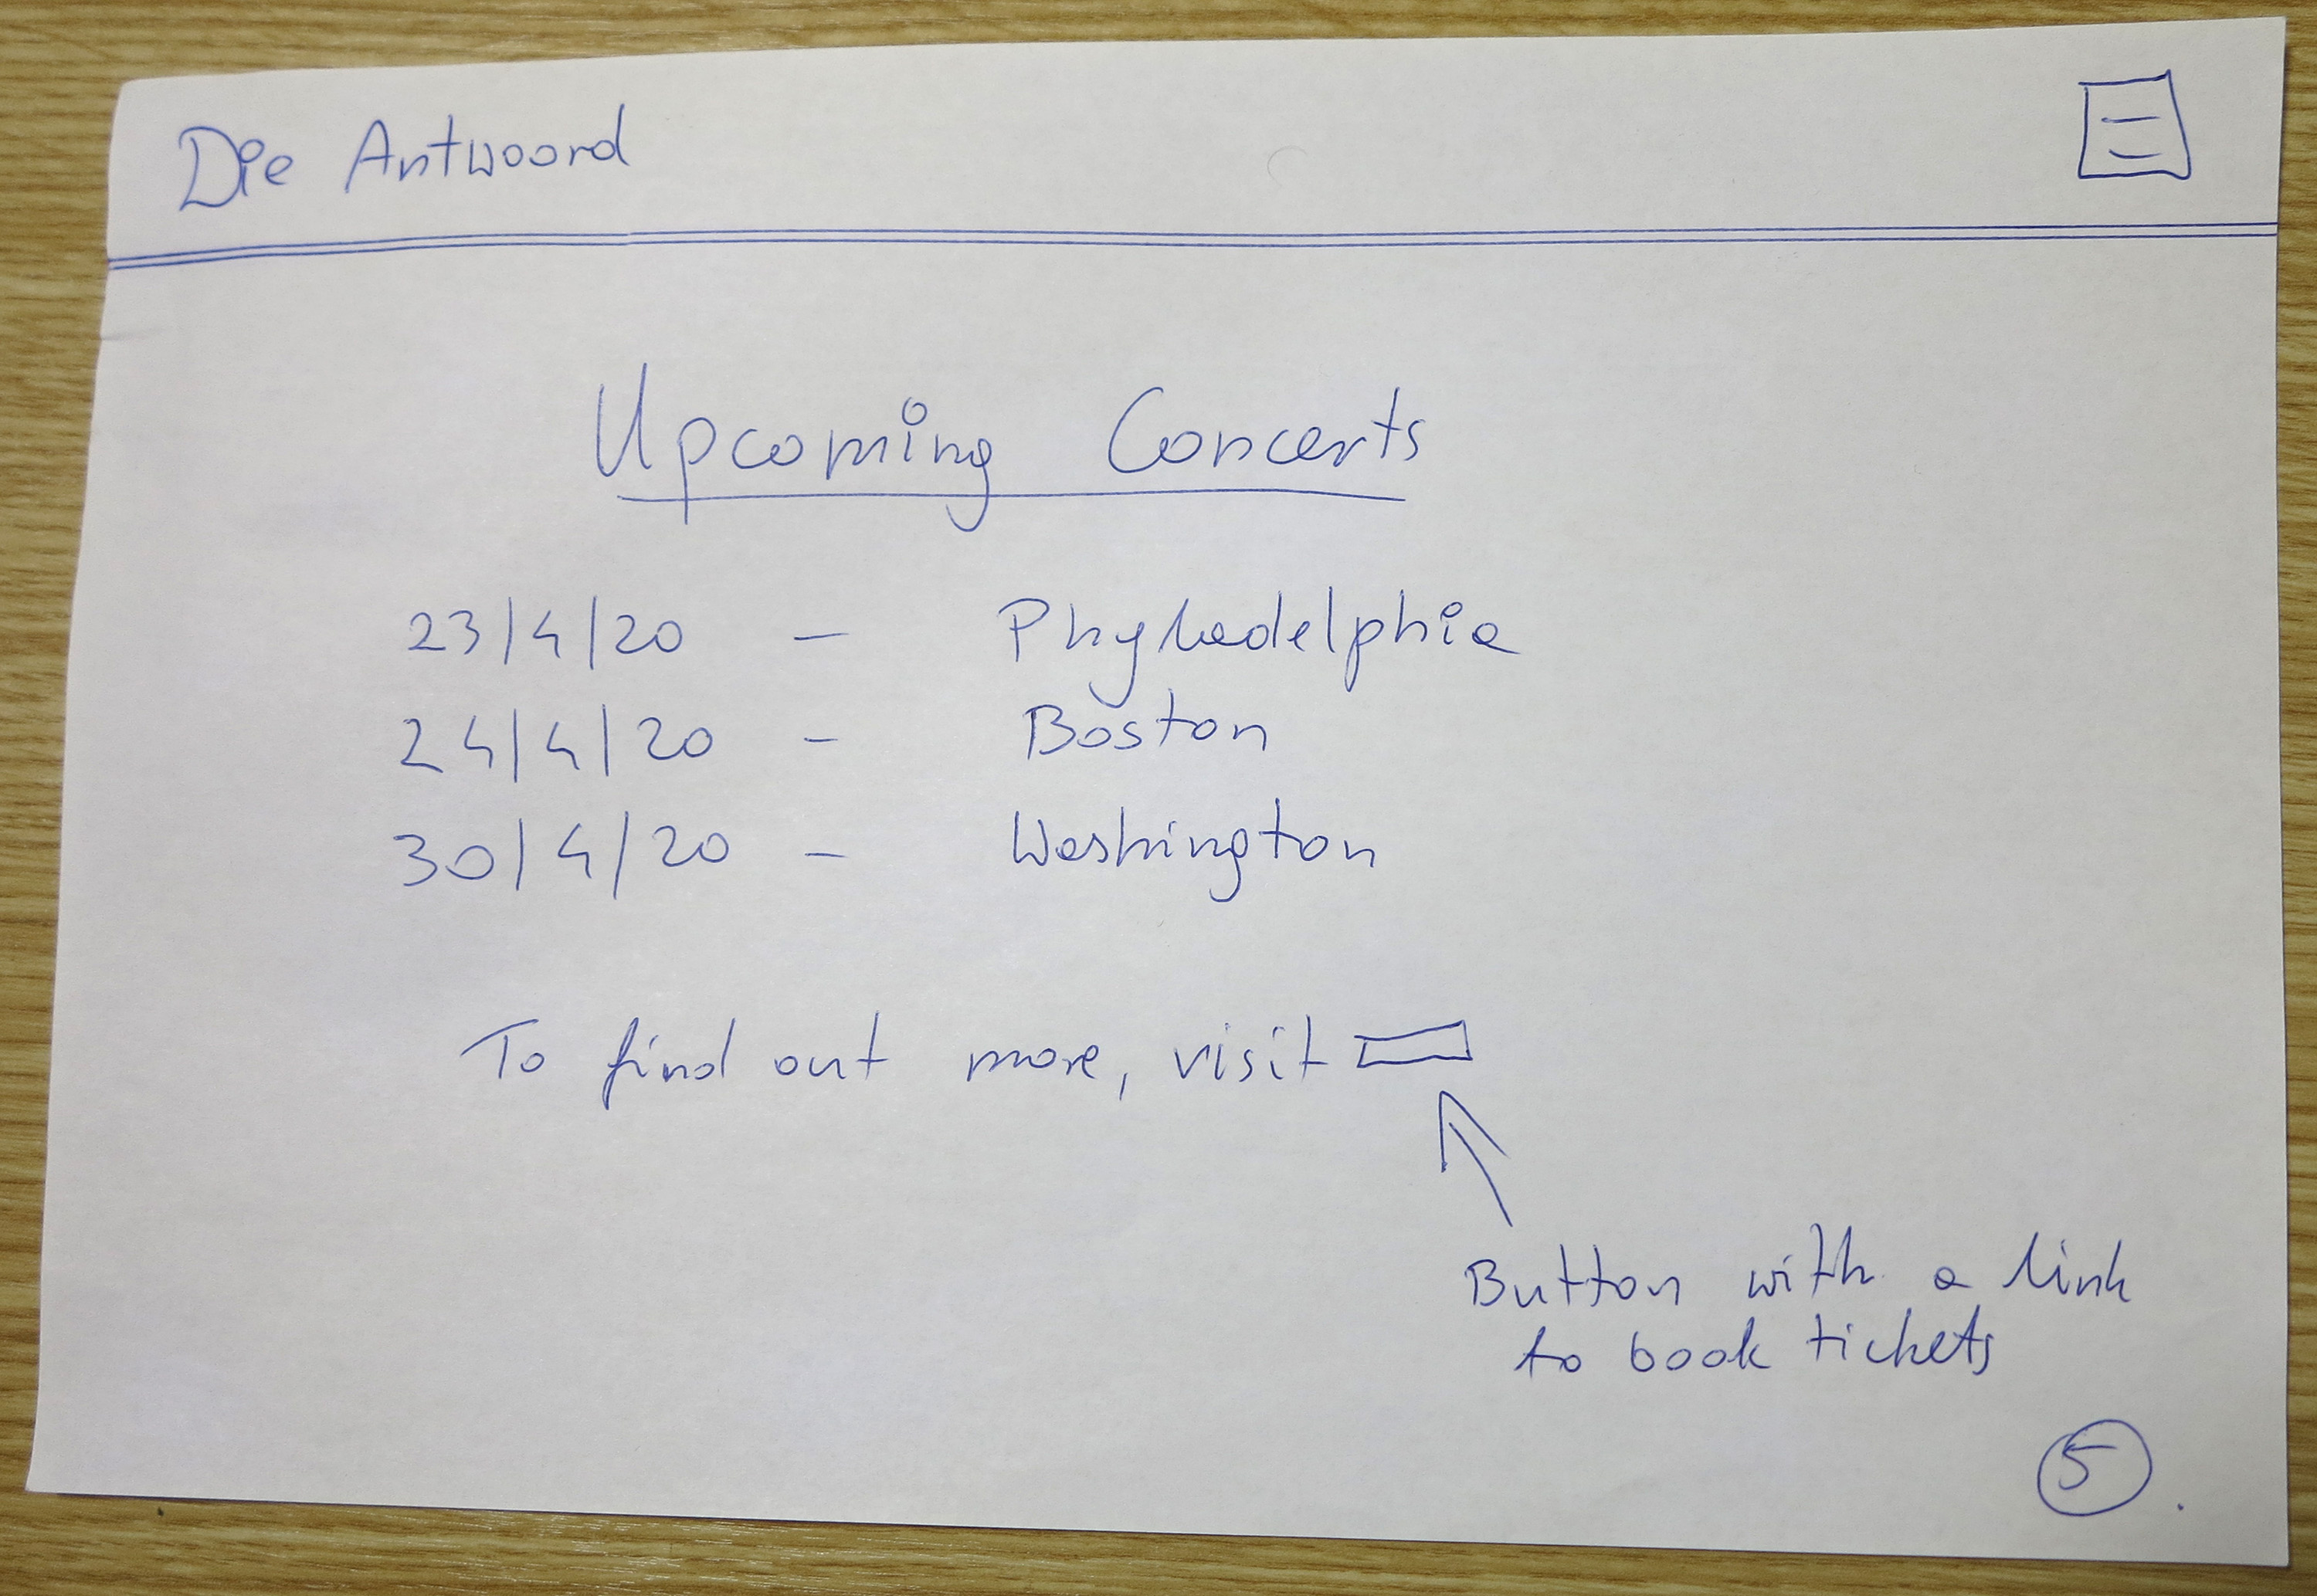 Die Antwoord
Upcoming Concerts
23/4/20 - Phyladelphia
24/4/20 - Boston
30/4/20 - Washington
To find out more, visit
Button with a link
to book tickets
5